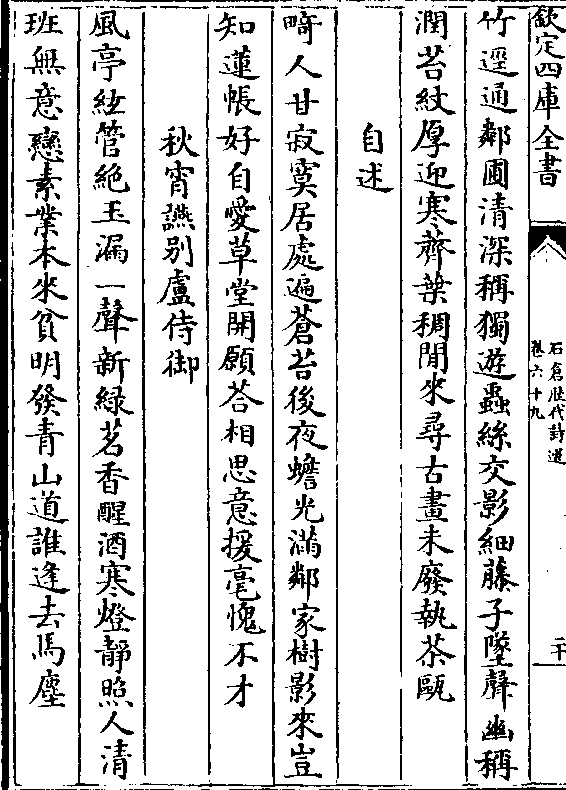 欽定四庫全書
石倉歷代詩選
卷六十九
二十
竹逕通鄰圃清深稱獨遊蟲絲交影細藤子墜聲幽稱
潤苔紋厚迎寒薺葉稠閒來尋古畫未廢執茶甌
自述
畸人甘寂寞居處遍蒼苔後夜蟾光滿鄰家樹影來豈
知蓮帳好自愛草堂開願荅相思意援毫愧不才
秋宵讌別盧侍御
風亭絃管絶玉漏一聲新緑茗香醒酒寒燈靜照人清
班無意戀素業本來貧明發青山道誰逢去馬塵